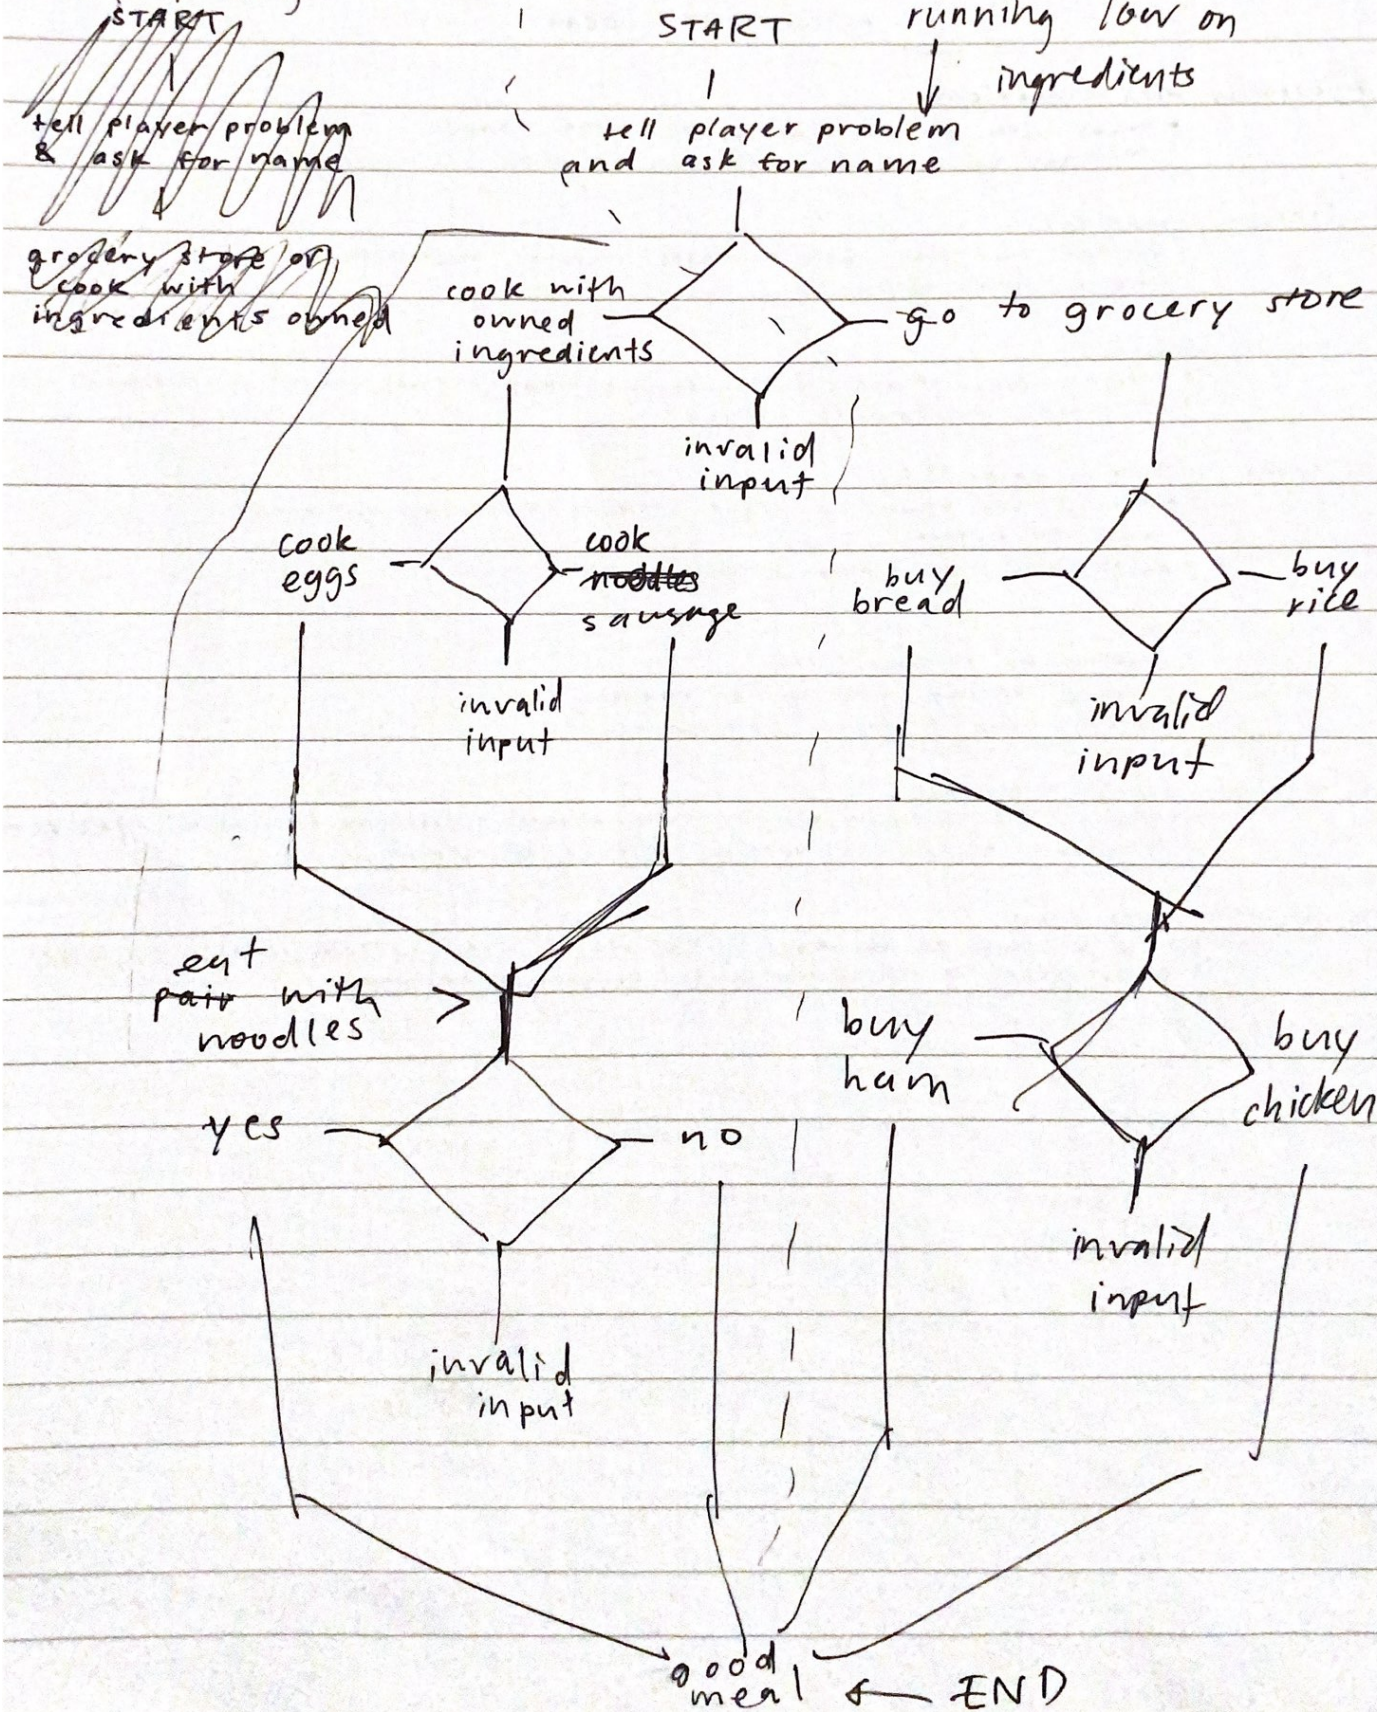 START
tell player problem
& ask for name
grocery store or
cook with
ingredients owned
START
running low on
ingredients
tell player problem
and ask for name
cook with
owned
ingredients
go to grocery store
invalid
input
cook
eggs
cook
noodles
sausage
invalid
input
buy
bread
buy
rice
invalid
input
eat
pair with
noodles
yes
no
invalid
input
buy
ham
buy
chicken
invalid
input
good
meal
END